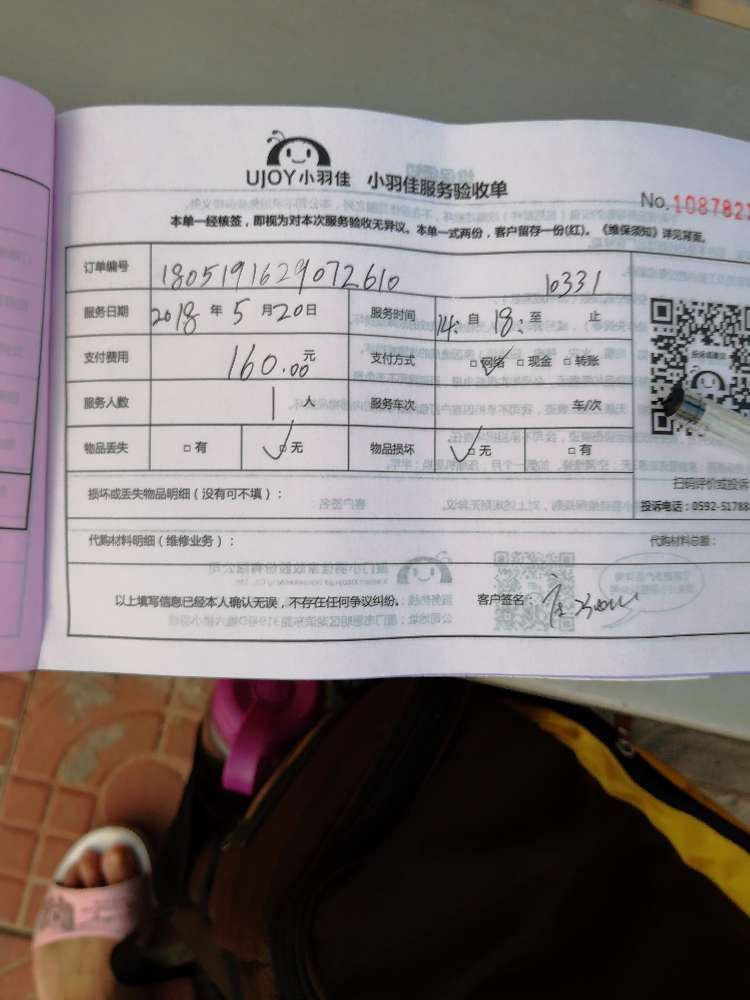 UJOY小羽佳 小羽佳服务验收单
No. 1087821
本单一经核签，即视为对本次服务验收无异议。本单一式两份，客户留存一份(红)。《维保须知》详见背面。
订单编号 1805191629072610 10331
服务日期 2018 年 5 月 20 日 服务时间 14: 自 18: 至 止
支付费用 160.00 元 支付方式 □网络 □现金 □转账
服务人数 1 人 服务车次 车/次
物品丢失 □有 □无 物品损坏 □无 □有
扫码评价或投诉
损坏或丢失物品明细（没有可不填）：
投诉电话：0592-51788
代购材料明细（维修业务）： 代购材料总额：
以上填写信息已经本人确认无误，不存在任何争议纠纷。 客户签名：